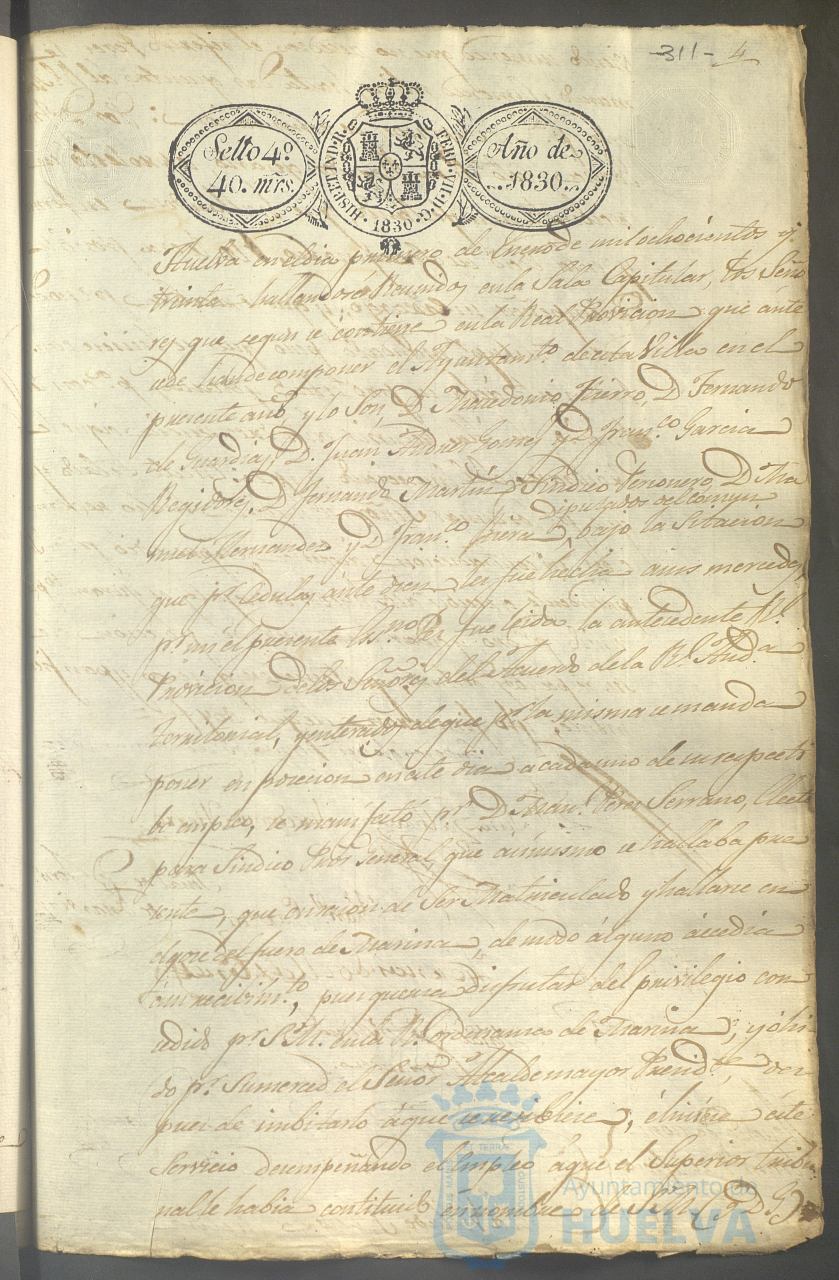 -311- 4
Sello 4º.
40. mrs.
HISPET IND R. FERD. VII. D. G.
·1830·
Año de
1830.
Huelva en el dia primero de Enero de mil ochocientos y
treinta hallandose Reunidos en la Sala Capitular, los Seño
res que segun se contiene en la Real Provicion que ante
cede han de componer el Ayuntamto. de esta Villa en el
presente año y lo son, D. Macedonio Fierro, D. Fernando
de Guardia, D. Juan Andres Gomez y D. Franco. Garcia
Regidores, D. Fernando Martin Sindico Personero, D. Ma
Diputados del comun
nuel Hernandez y D. Franco. bajo la Sitacion
que pr. Cedulas ante diem les fue hecha a sus mercedes,
pr. mi el presente Esno. fue leida la antecedente Rl.
Provicion de los Señores del Acuerdo de la Rl. Auda.
territorial, y enterados de que pr. la misma se manda
poner en posecion en este dia a cada uno de su respecti
bo empleo, se manifestó pr. D. Man. Perez Serrano, Electo
para Sindico Pror. General, que asimismo se hallaba pre
sente, que en razon de Ser Matriculado y hallarse en
el goze del fuero de Marina, de modo alguno accedia
a su recibimto., pues queria disfrutar del privilegio con
cedido pr. S.M. en la Rl. Ordenanza de Marina, y ohi
do pr. Sumerced el Señor Alcalde mayor Presidte., des
pues de imbitarlo á que se recibiese, é hiciese este
Servicio desempeñando el Empleo á que el Superior tribu
nal le habia constituido en nombre de S.M. (q. D. G.)
Ayuntamiento de
HUELVA